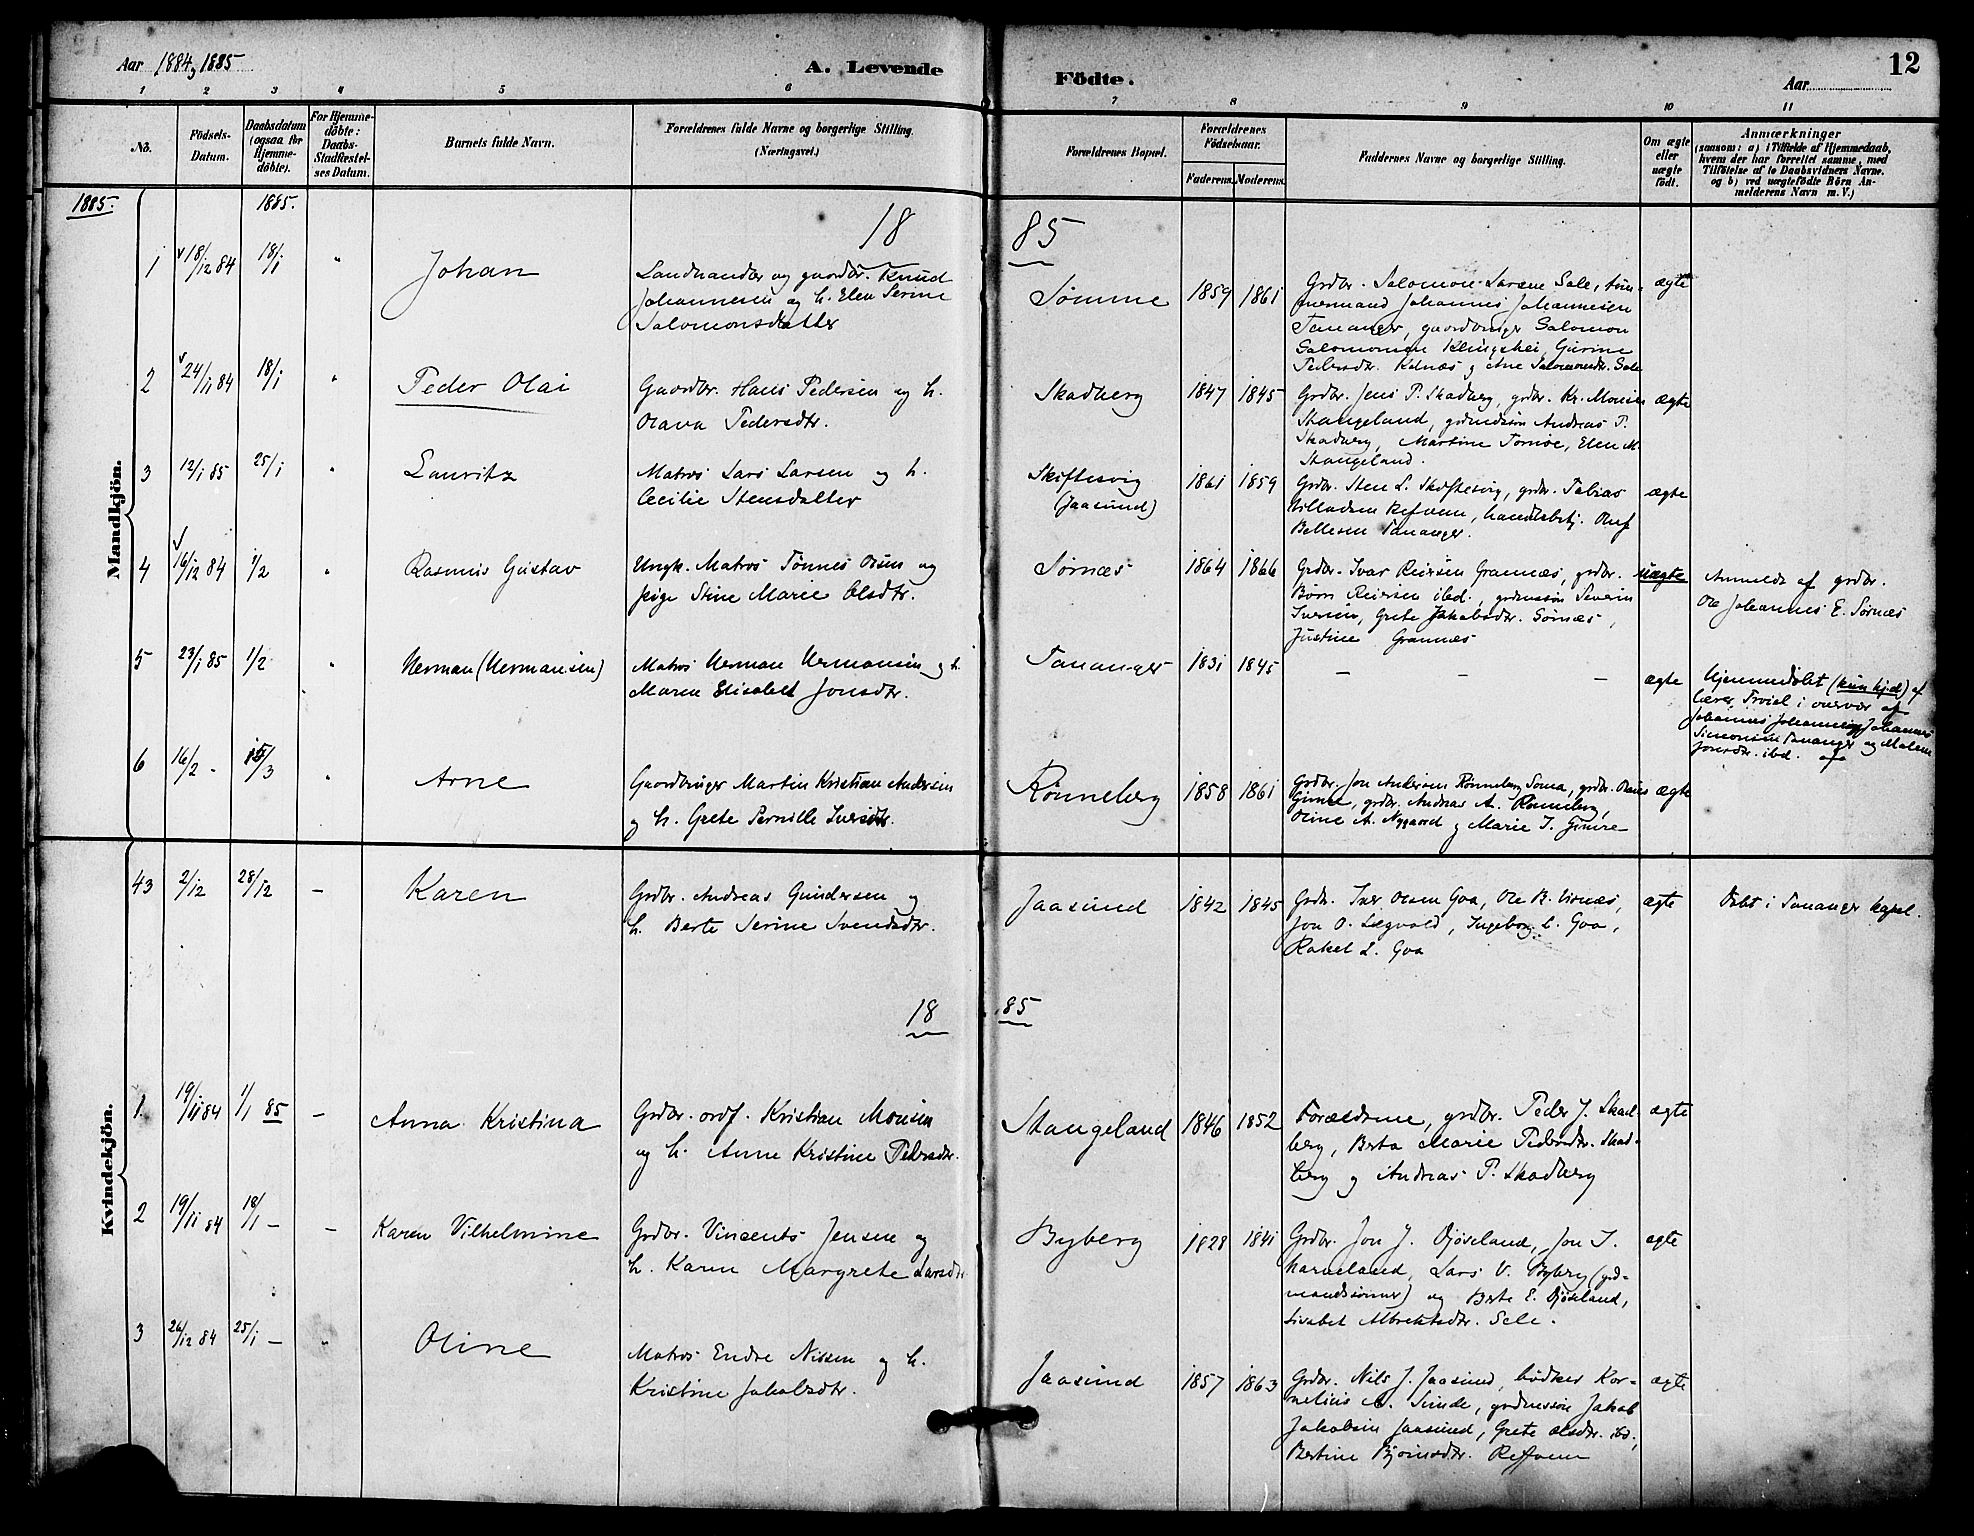 Aar 1884 og 1885
A. Levende
Födte.
Aar
12
1 2 3 4 5 6 7 8 9 10 11
No.
Födsels-
Datum.
Daabsdatum
(ogsaa for
Hjemme-
döbte).
For Hjemme-
döbte:
Daabs-
Stadfæstel-
ses Datum.
Barnets fulde Navn.
Forældrenes fulde Navne og borgerlige Stilling.
(Næringsvei.)
Forældrenes Bopæl.
Forældrenes
Födselsaar.
Faderens. Moderens.
Faddernes Navne og borgerlige Stilling.
Om ægte
eller
uægte
födt.
Anmærkninger
(saasom: a) i Tilfælde af Hjemmedaab,
hvem der har forrettet samme, med
Tilföielse af to Daabsvidners Navne.
og b) ved uægtefödte Börn An-
melderens Navn m. V.)
1885.
1885.
18 85
Mandkjön.
1 18/12 84 18/1 " Johan
Landhandler og gaardbr. Knud
Johannesen og h. Elen Serine
Salomonsdatter
Sømme 1859 1861
Grdbr. Salomon Larsen Sole, tøm-
mermand Johannes Johannesen
Tananger, gaardbruger Salomon
Salomonsen Klingshei, Gurine
Pedersdtr. Kolnæs og Ane Salomonsdtr. Sole
ægte
2 24/11 84 18/1 " Peder Olai
Gaardbr. Hans Pedersen og h.
Olava Pedersdtr.
Skadberg 1847 1845
Grdbr. Jens P. Skadberg, grdbr. Kr. Monsen
Stangeland, grdmdssøn Andreas P.
Skadberg, Martine Tornøe, Elen M.
Stangeland.
ægte
3 12/1 85 25/1 " Lauritz
Matros Lars Larsen og h.
Cecilie Stensdatter
Skiftesvig
(Jaasund)
1861 1859
Grdbr. Sten L. Skiftesvig, grdbr. Tobias
Refvem, handelsbetj. Oluf
Tananger.
ægte
4 16/12 84 1/2 " Rasmus Gustav
Ungk. Matros Tønnes Olsen og
pige Stine Marie Olsdtr.
Sørnæs 1864 1866
Grdbr. Ivar Reiersen Grannæs, grdbr.
Børn Reiersen ibd., grdmssøn Severin
Iversen, Grete Jakobsdtr. Sørnæs,
Justine Grannæs
uægte
Anmeldt af grdbr.
Ole Johannes E. Sørnæs
5 23/1 85 1/2 " Herman (Hermansen)
Matros Herman Hermansen og h.
Maren Elisabet Jonsdtr.
Tananger 1831 1845
— — —
ægte
Hjemmedøbt (kun hjd.) af
lærer Troial i overvær af
Johannes Johannesen, Johannes
Simonsen Tananger og Malene
Jonsdtr. ibd.
6 16/2 - 15/3 " Arne
Gaardbruger Martin Kristian Andersen
og h. Grete Pernille Iversdtr.
Rønneberg 1858 1861
Grdbr. Jon Andersen Rønneberg Soma, grdbr. Olaus
Gimre, grdbr. Andreas A. Rønneberg,
Oline A. Nygaard og Marie I. Gimre
ægte
Kvindekjön.
43 2/12 28/12 — Karen
Grdbr. Andreas Gundersen og
h. Berte Serine Svendsdtr.
Jaasund 1842 1845
Grdbr. Iver Olsen Goa, Ole B. Visnæs,
Jon O.Ligvold, Ingeborg L. Goa,
Rakel L. Goa
ægte
Døbt i Tananger kapel.
18 85
1. 19/11 84 1/1 85 — Anna Kristina
Grdbr. ordf. Kristian Monsen
og h. Anne Kristine Pedersdtr.
Stangeland 1846 1852
Forældrene, grdbr. Peder J. Skad-
berg, Berta Marie Pedersdtr. Skad-
berg og Andreas P. Skadberg
ægte
2 19/11 84 18/1 — — Karen Vilhelmine
Grdbr. Vincents Jensen og
h. Karen Margrete Larsdtr.
Byberg 1828 1841
Grdbr. Jon J. Øjeseland, Jon T.
Harveland, Lars V. Byberg (grd-
mandssønner) og Berte E. Øjeseland,
Lisabet Albrektsdtr. Sele.
ægte
3 26/12 84 25/1 — " Oline
Matros Endre Nilsen og h.
Kristine Jakobsdtr.
Jaasund 1857 1863
Grdbr. Nils J. Jaasund, bødker Kor-
nelius A. Sunde, grdmssøn Jakob
Jakobsen Jaasund, Grete Olsdtr. ibd.,
Bertine Bjørnsdtr. Refvem
ægte